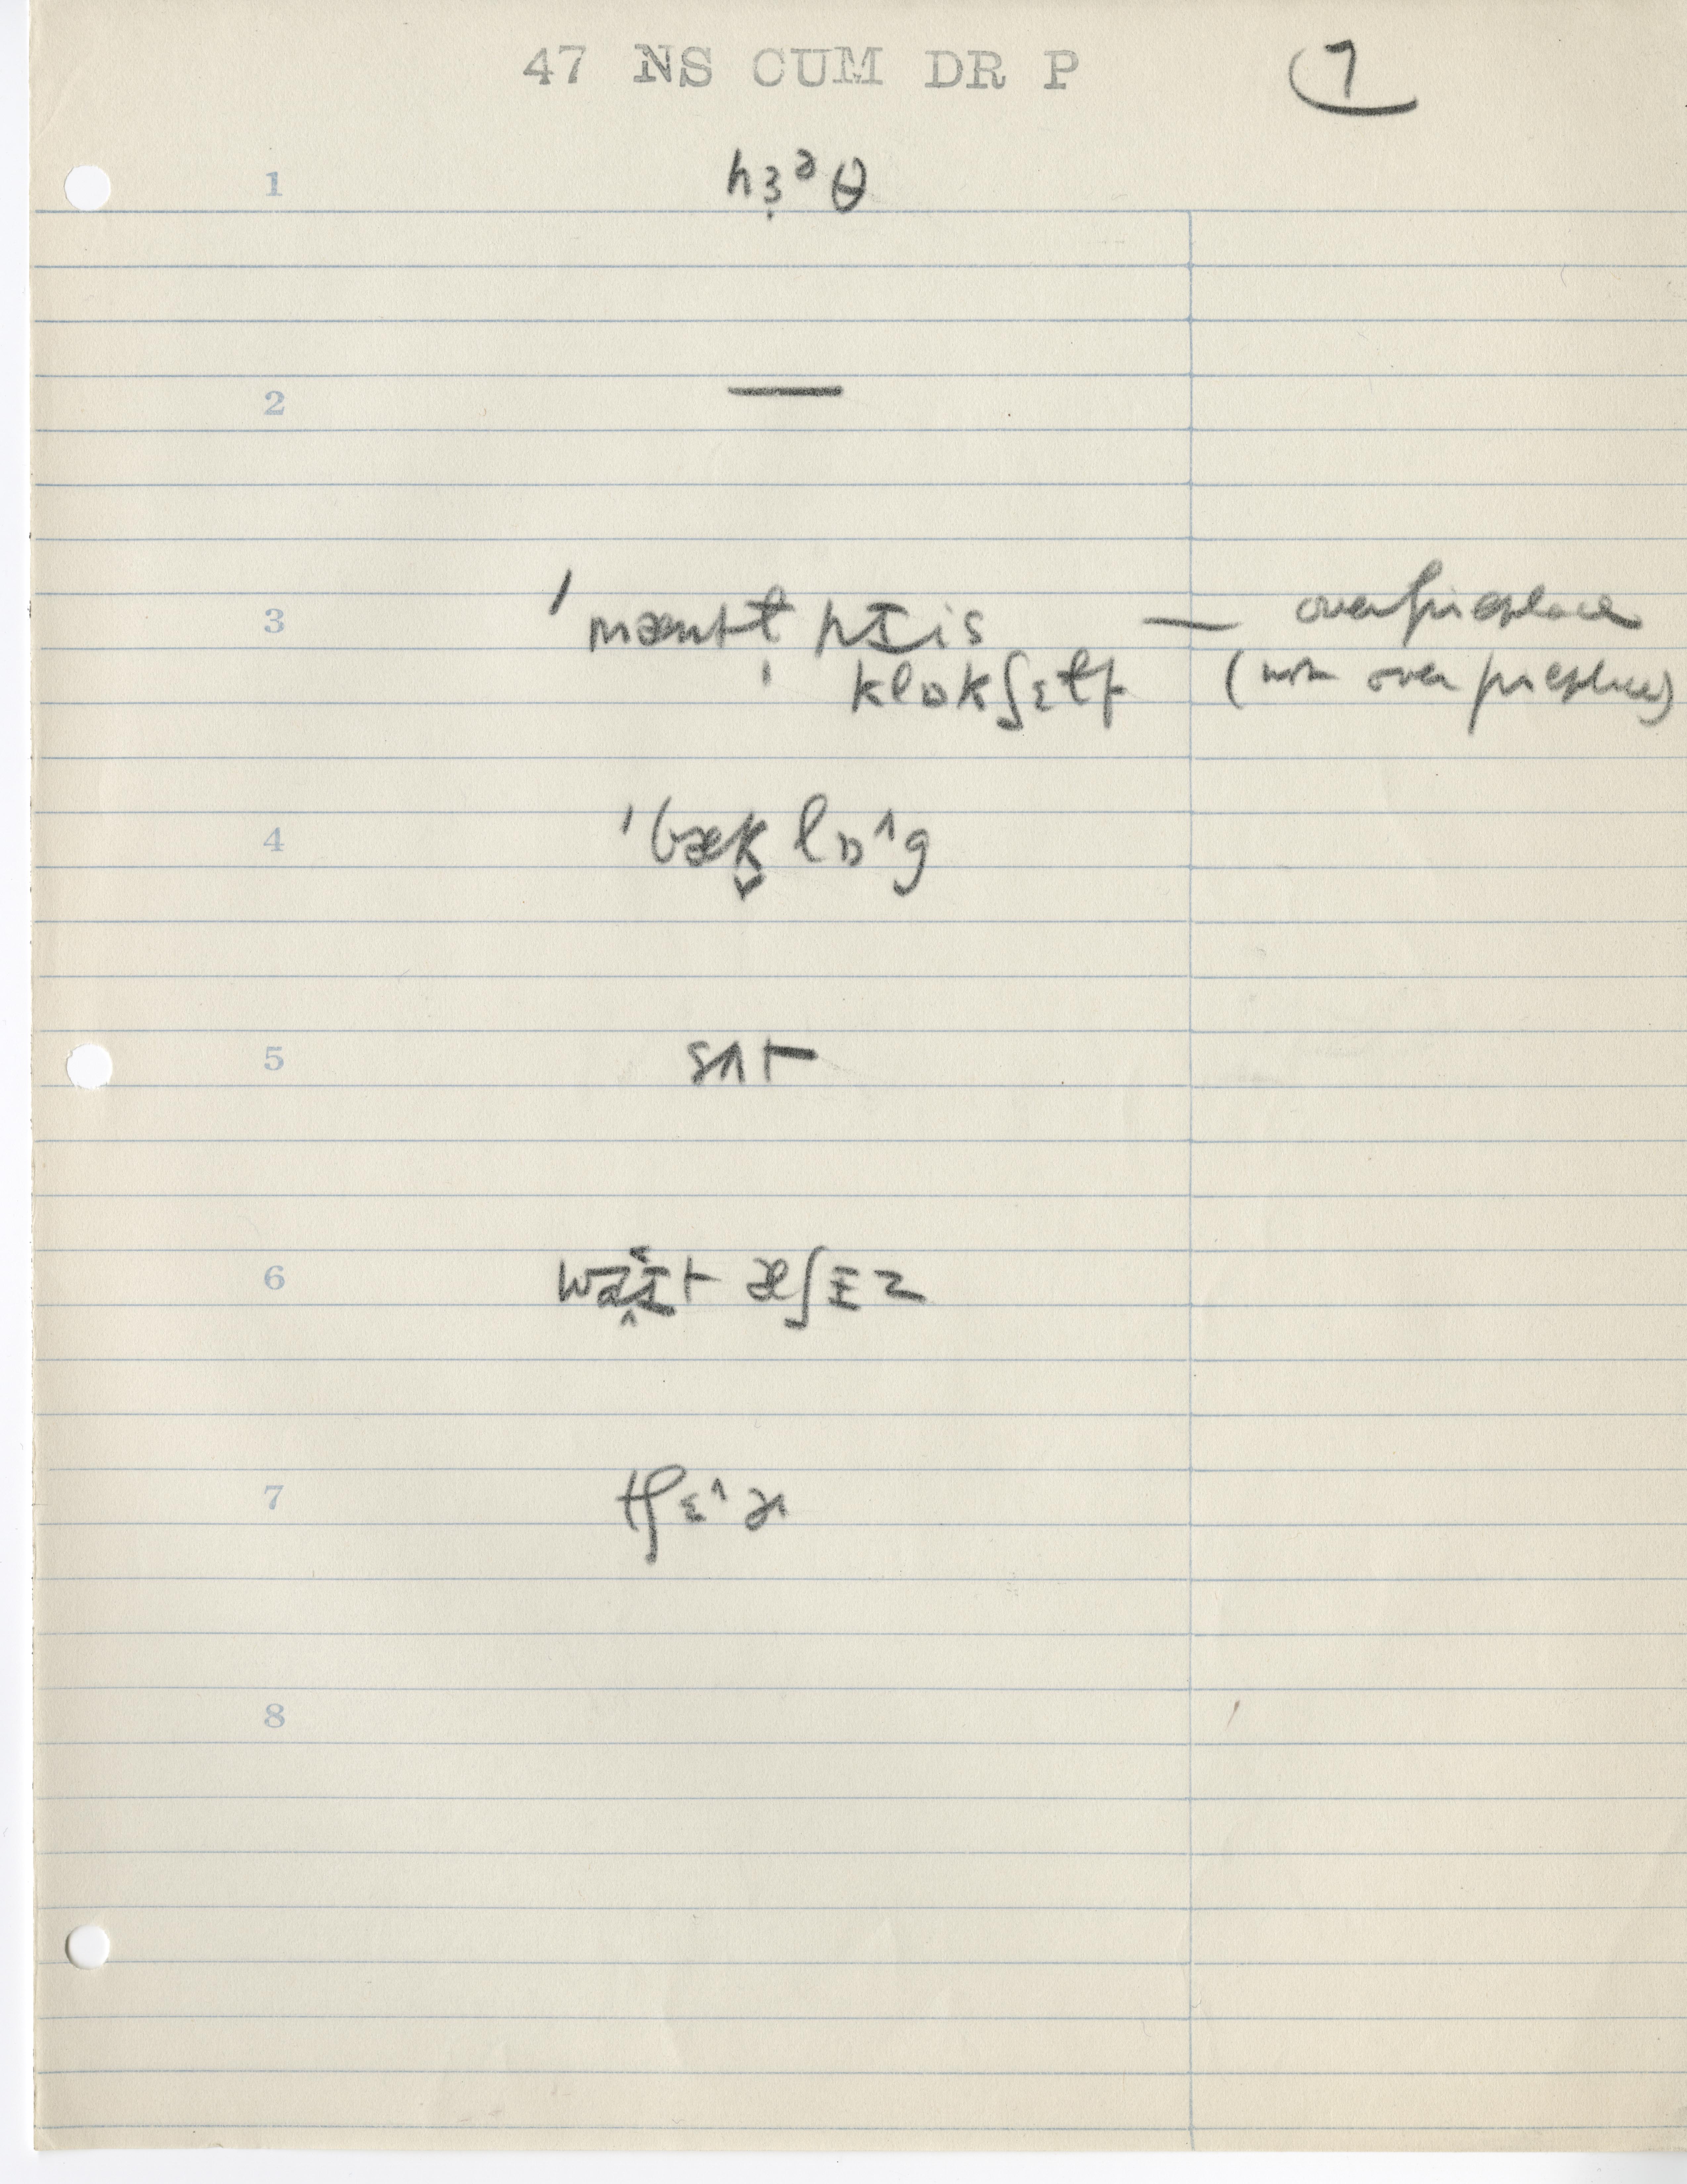 47 NS CUM DR P 7
1 hɜ̣ᵊθ
2 —
3 ˈmæntɫ̩ pɪis — over fireplace
klɒkʃɛɫf (not over fireplace)
4 ˈbæk̬ lɒ^g
5 sʌt
6 waɪt æʃɪz
7 tʃɛ^ɚ
8